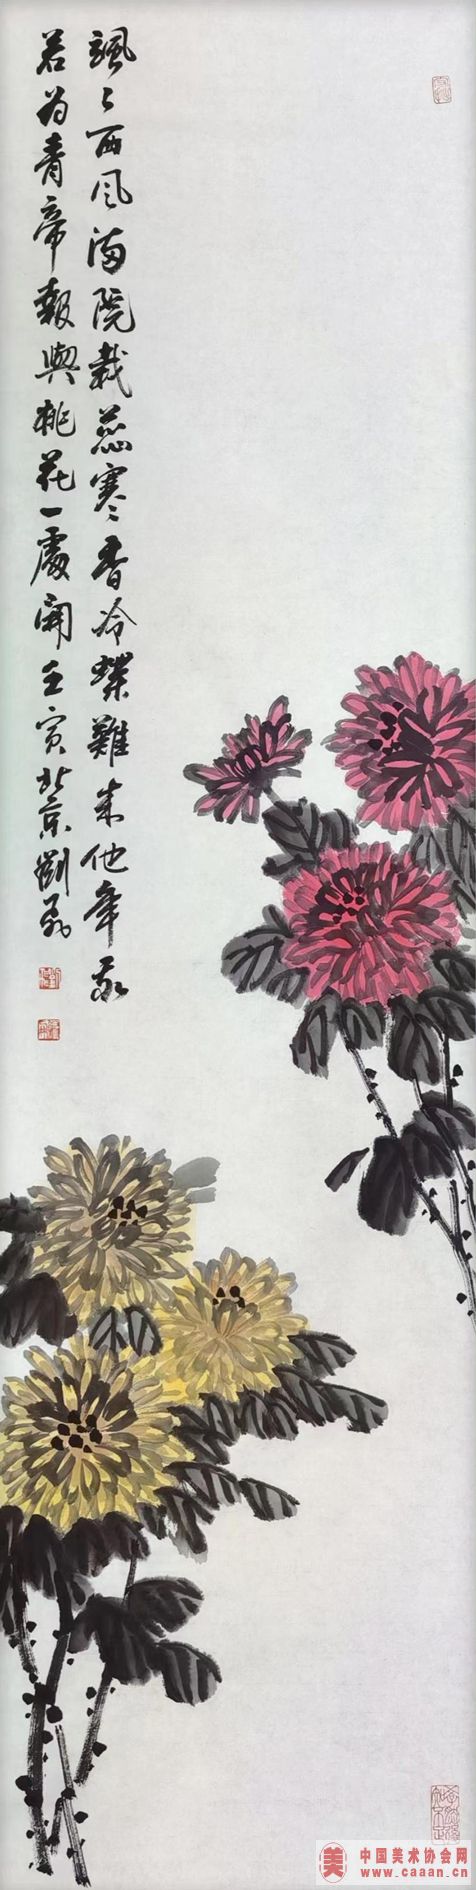 颯々西风满院栽蕊寒香冷蝶難来他年我
若为青帝報與桃花一處開壬寅北京劉
美 中国美术协会网
www.caaan.cn